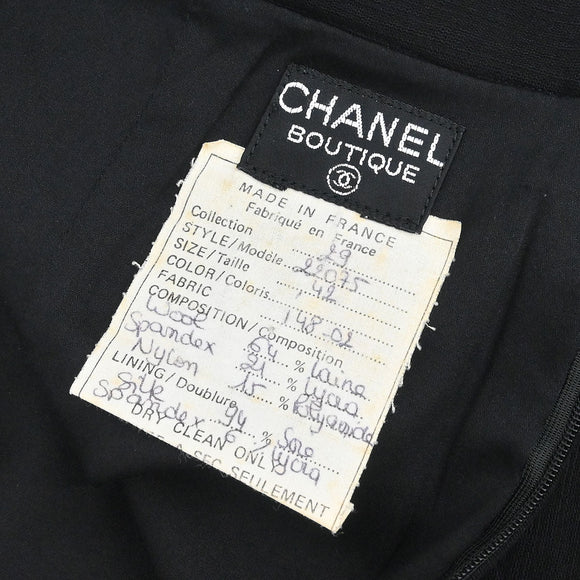 CHANEL
BOUTIQUE
MADE IN FRANCE
Fabriqué en France
Collection 29
STYLE/Modèle 22095
SIZE/Taille 42
COLOR/Coloris
FABRIC 148-02
COMPOSITION/Composition
Wool 64 % Laine
Spandex 21 % Lycra
Nylon 15 % Polyamide
LINING/Doublure
Silk 94 % Soie
Spandex 6 % Lycra
DRY CLEAN ONLY
A SEC SEULEMENT